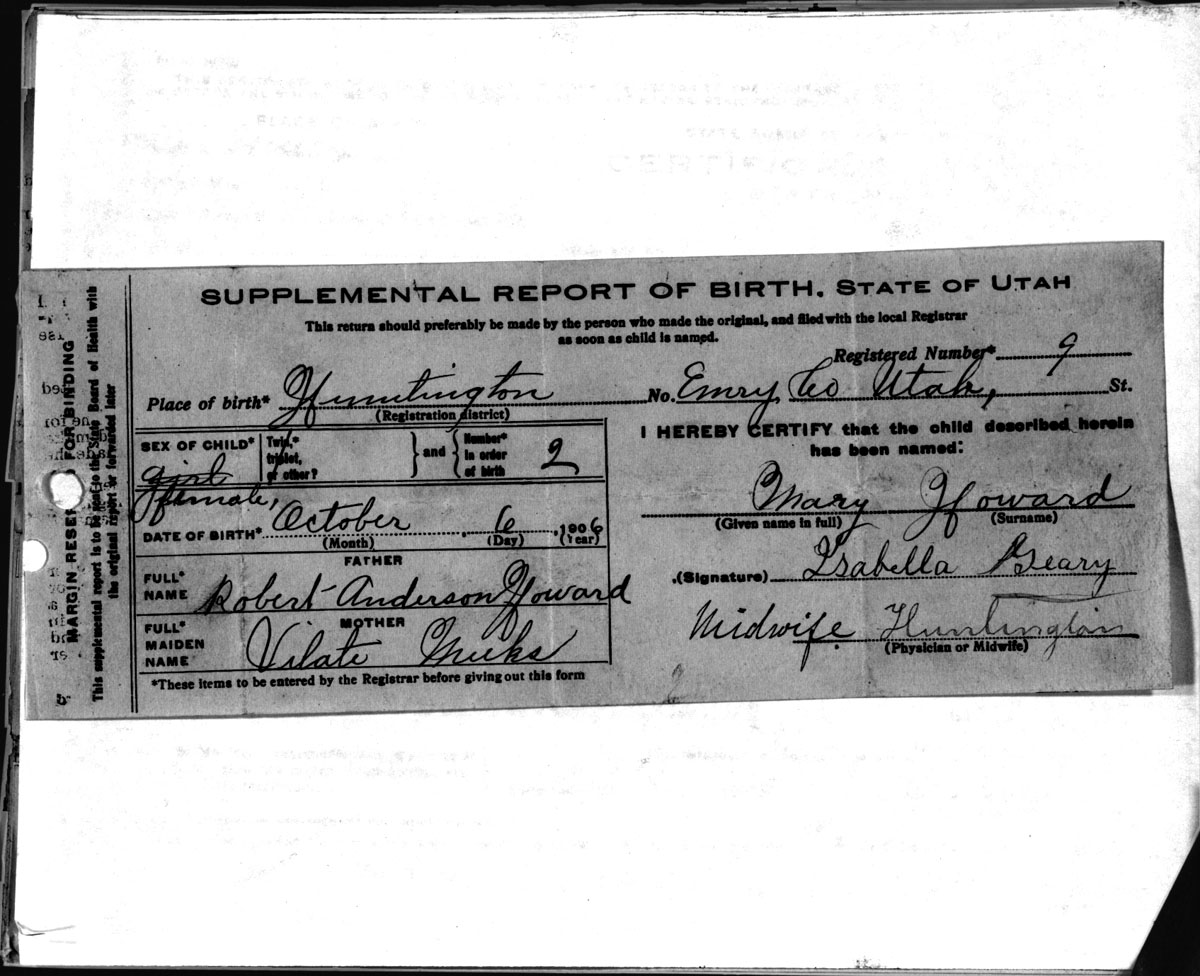 SUPPLEMENTAL REPORT OF BIRTH. STATE OF UTAH
This return should preferably be made by the person who made the original, and filed with the local Registrar
as soon as child is named.
Registered Number* 9
Place of birth* Huntington No. Emry Co Utah, St.
(Registration district)
SEX OF CHILD* Twin,* triplet, or other? } and { Number* in order of birth 2
girl
female,
DATE OF BIRTH* October 6, 1906
(Month) (Day) (Year)
FATHER
FULL* NAME Robert Anderson Howard
MOTHER
FULL* MAIDEN NAME Vilate Meeks
*These items to be entered by the Registrar before giving out this form
I HEREBY CERTIFY that the child described herein
has been named:
Mary Howard
(Given name in full) (Surname)
(Signature) Isabella Geary
Midwife Huntington
(Physician or Midwife)
MARGIN RESERVED FOR BINDING
This supplemental report is to be sent to the State Board of Health with
the original report or forwarded later